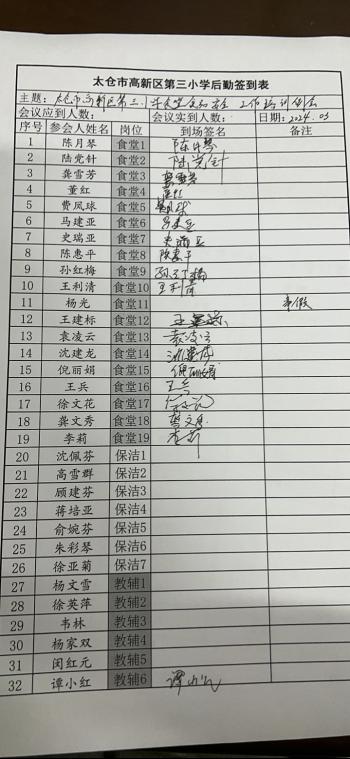 太仓市高新区第三小学后勤签到表
主题：太仓市高新区第三小学食堂食品安全工作培训例会
会议应到人数： 会议实到人数： 日期：2024.03
序号 参会人姓名 岗位 到场签名 备注
1 陈月琴 食堂1 陈月琴
2 陆党针 食堂2 陆党针
3 龚雪芳 食堂3 龚雪芳
4 董红 食堂4 董红
5 费凤球 食堂5 费凤球
6 马建亚 食堂6 马建亚
7 史瑞亚 食堂7 史瑞亚
8 陈惠平 食堂8 陈惠平
9 孙红梅 食堂9 孙红梅
10 王利清 食堂10 王利清
11 杨光 食堂11 事假
12 王建标 食堂12 王建标
13 袁凌云 食堂13 袁凌云
14 沈建龙 食堂14 沈建龙
15 倪丽娟 食堂15 倪丽娟
16 王兵 食堂16 王兵
17 徐文花 食堂17 徐文花
18 龚文秀 食堂18 龚文秀
19 李莉 食堂19 李莉
20 沈佩芬 保洁1
21 高雪群 保洁2
22 顾建芬 保洁3
23 蒋培亚 保洁4
24 俞婉芬 保洁5
25 朱彩琴 保洁6
26 徐亚菊 保洁7
27 杨文雪 教辅1
28 徐英萍 教辅2
29 韦林 教辅3
30 杨家双 教辅4
31 闵红元 教辅5
32 谭小红 教辅6 谭小红